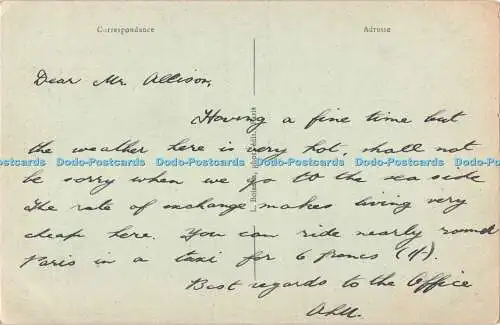 Correspondance
Adresse
Dear Mr. Allison,
Having a fine time but
the weather here is very hot, shall not
be sorry when we go to the sea side
The rate of exchange makes living very
cheap here. You can ride nearly round
Paris in a taxi for 6 francs (1/-).
Best regards to the Office
Dodo-Postcards Dodo-Postcards Dodo-Postcards Dodo-Postcards Dodo-Postcards